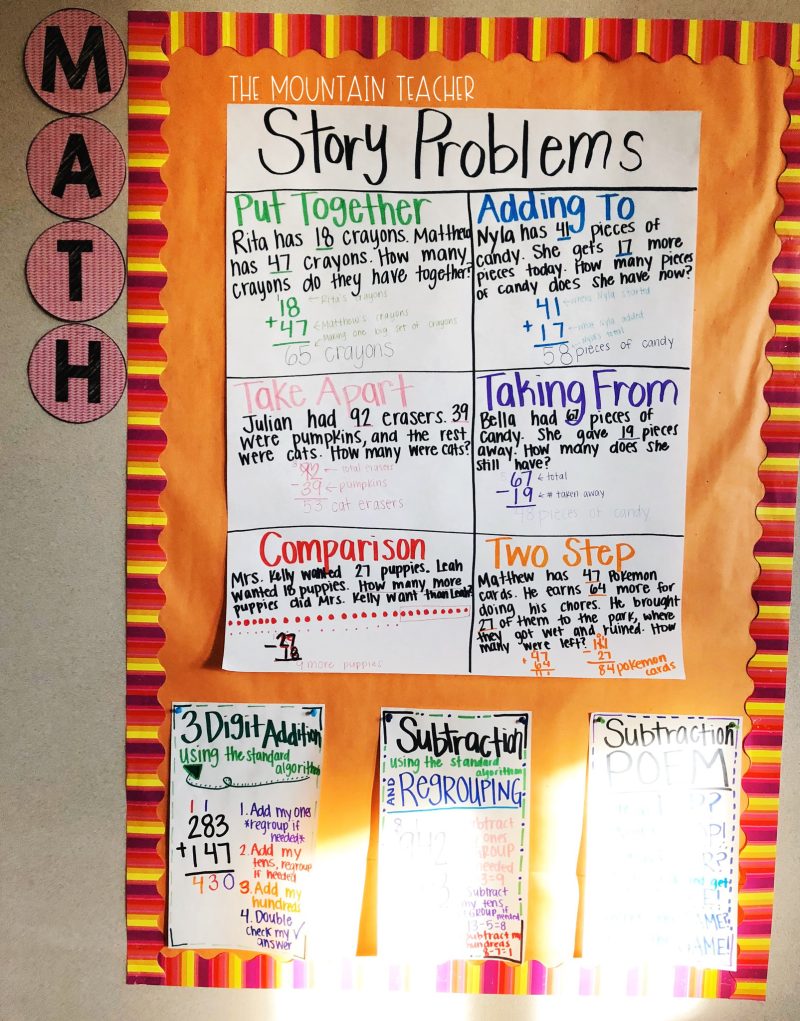 MATH
THE MOUNTAIN TEACHER
Story Problems
Put Together
Rita has 18 crayons. Matthew
has 47 crayons. How many
crayons do they have together?
18 ← Rita's crayons
+ 47 ← Matthew's crayons
← Making one big set of crayons
65 crayons
Adding To
Nyla has 41 pieces of
candy. She gets 17 more
pieces today. How many pieces
of candy does she have now?
41 ← where Nyla started
+ 17 ← what Nyla added
← Nyla's total
58 pieces of candy
Take Apart
Julian had 92 erasers. 39
were pumpkins, and the rest
were cats. How many were cats?
92 ← total erasers
- 39 ← pumpkins
53 cat erasers
Taking From
Bella had 67 pieces of
candy. She gave 19 pieces
away. How many does she
still have?
67 ← total
- 19 ← # taken away
48 pieces of candy
Comparison
Mrs. Kelly wanted 27 puppies. Leah
wanted 18 puppies. How many more
puppies did Mrs. Kelly want than Leah?
- 27
18
9 more puppies
Two Step
Matthew has 47 Pokemon
cards. He earns 64 more for
doing his chores. He brought
27 of them to the park, where
they got wet and ruined. How
many were left?
+ 47
64
111
- 27
84 pokemon
cards
3 Digit Addition
using the standard
algorithm
1 1
283
+ 147
430
1. Add my ones
*regroup if
needed*
2. Add my
tens, regroup
if needed
3. Add my
hundreds
4. Double
check my ✓
answer
Subtraction
using the standard
algorithm
AND REGROUPING
942
3
subtract
ones
needed
subtract
my tens,
if needed
13-5=8
subtract my
hundreds
8-7=1
Subtraction
POEM
get
GAME!